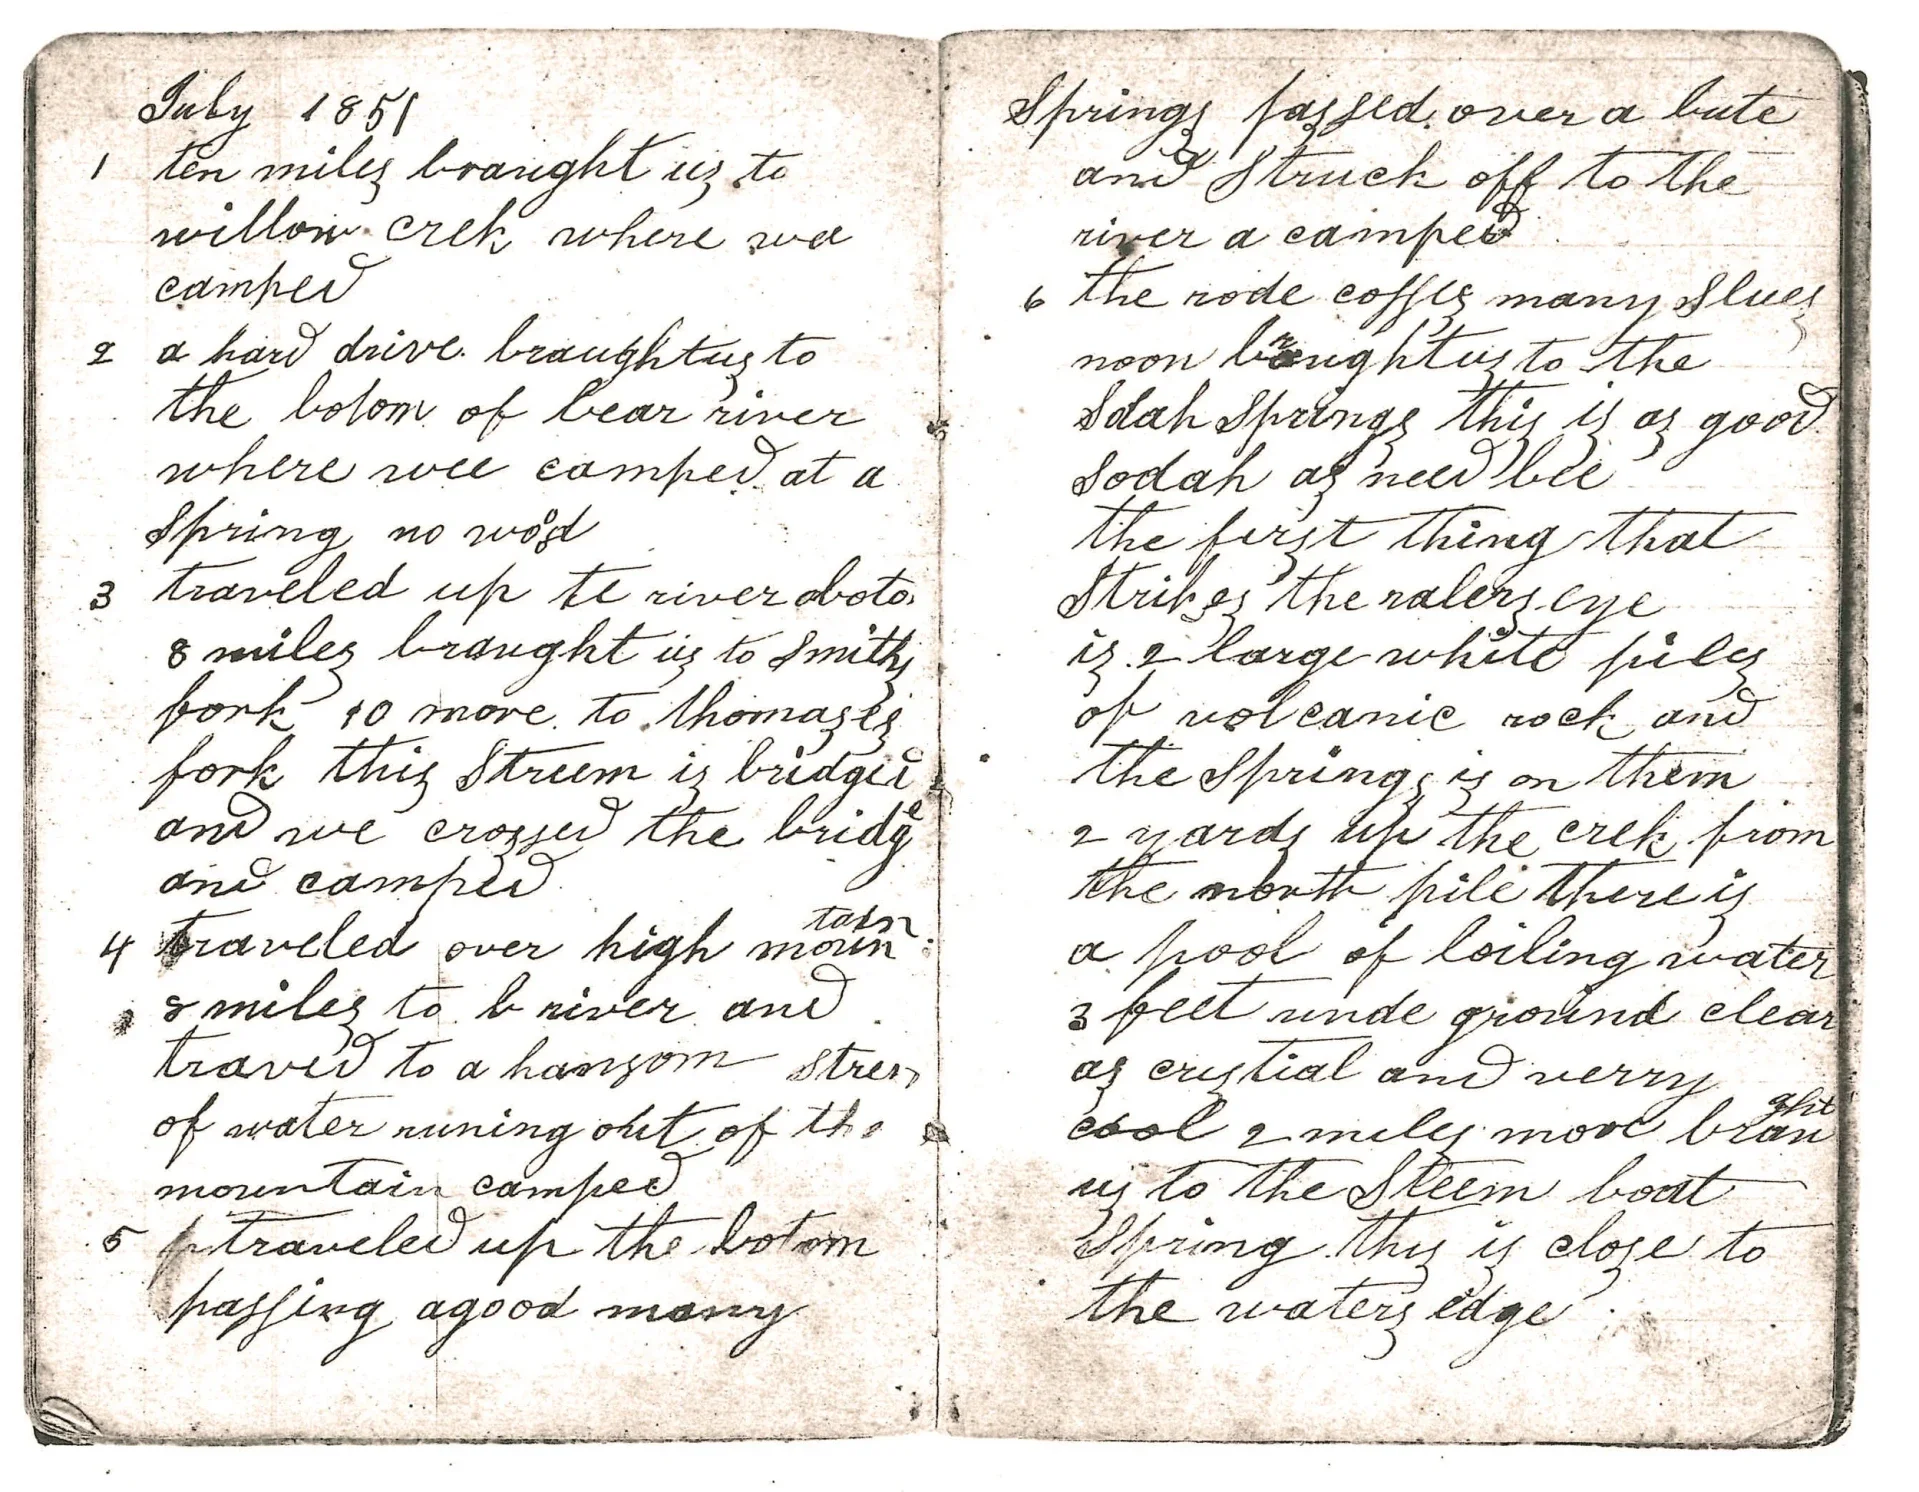 July 1851
1 ten miles braught us to
willow crek where we
camped
2 a hard drive braught us to
the botom of bear river
where wee camped at a
Spring no wood
3 traveled up te river boto
8 miles braught us to Smiths
fork 10 more to thomases
fork this Streem is bridged
and we crossed the bridge
and camped
4 traveled over high mountain
8 miles to b river and
traved to a hansom Strem
of water runing out of the
mountain camped
5 traveled up the botom
passing a good many
Springs passed over a bute
and Struck off to the
river a camped
6 the rode cosses many Slues
noon braught us to the
Sdah Springs this is as good
Sodah as need bee
the first thing that
Strikes the ralers eye
is 2 large white piles
of volcanic rock and
the Springs is on them
2 yards up the crek from
the north pile there is
a pool of boiling water
3 feet unde ground clear
as crystial and verry
cool 2 miles more braught
us to the Steem boat
Spring this is close to
the waters edge